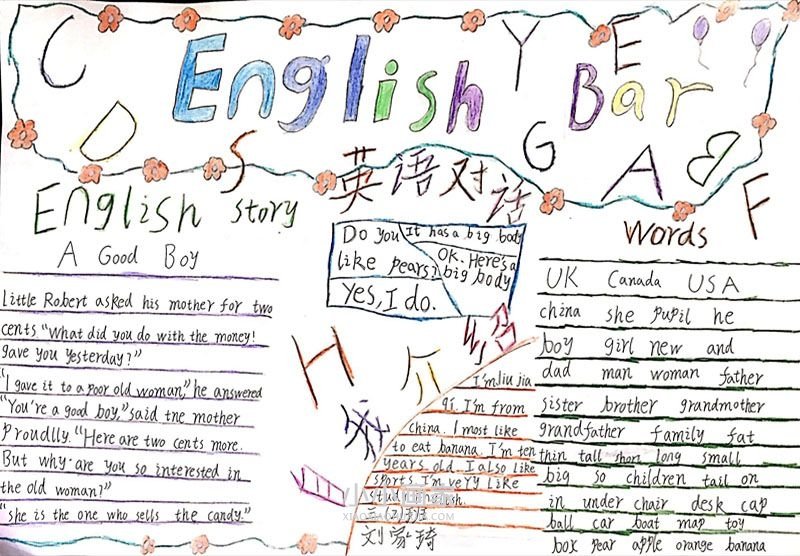 English Bar
C
D
S
Y
E
G
A
B
F
English story
A Good Boy
Little Robert asked his mother for two
cents "What did you do with the money!
gave you yesterday?"
"I gave it to a poor old woman," he answered
"You're a good boy," said the mother
Proudlly. "Here are two cents more.
But why are you so interested in
the old woman?"
"she is the one who sells the candy."
英语对话
Do you
like pears?
Yes, I do.
It has a big body
OK. Here's a
big body
H
介
绍
I'm liu jia
qi. I'm from
china. I most like
to eat banana. I'm ten
years old. I also like
sports I'm very like
English.
班
刘家琦
Words
UK Canada USA
china she pupil he
boy girl new and
dad man woman father
sister brother grandmother
grandfather family fat
thin tall short long small
big so children tail on
in under chair desk cap
ball car boat map toy
book pear apple orange banana